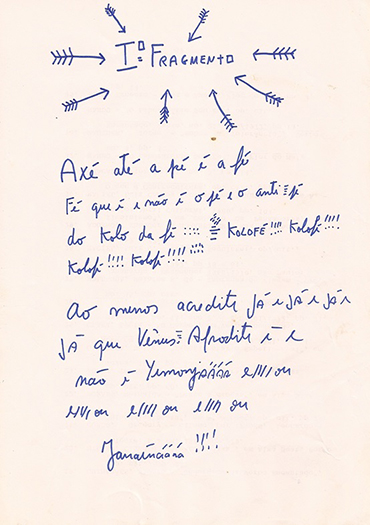 Iº = FRAGMENTO
Axé até a pé é a fé
Fé que é e não é o pé e o anti-fé
do Kolo da fé :::: KOLOFÉ!!!! Kolofé!!!!
Kolofé!!!! Kolofé!!!!
Ao menos acredite JÁ e JÁ e JÁ e
JÁ que Vênus Afrodite é e
não é Yemonjáááá e//// ou
e//// ou e//// ou e//// ou
Janaínáááá !!!!